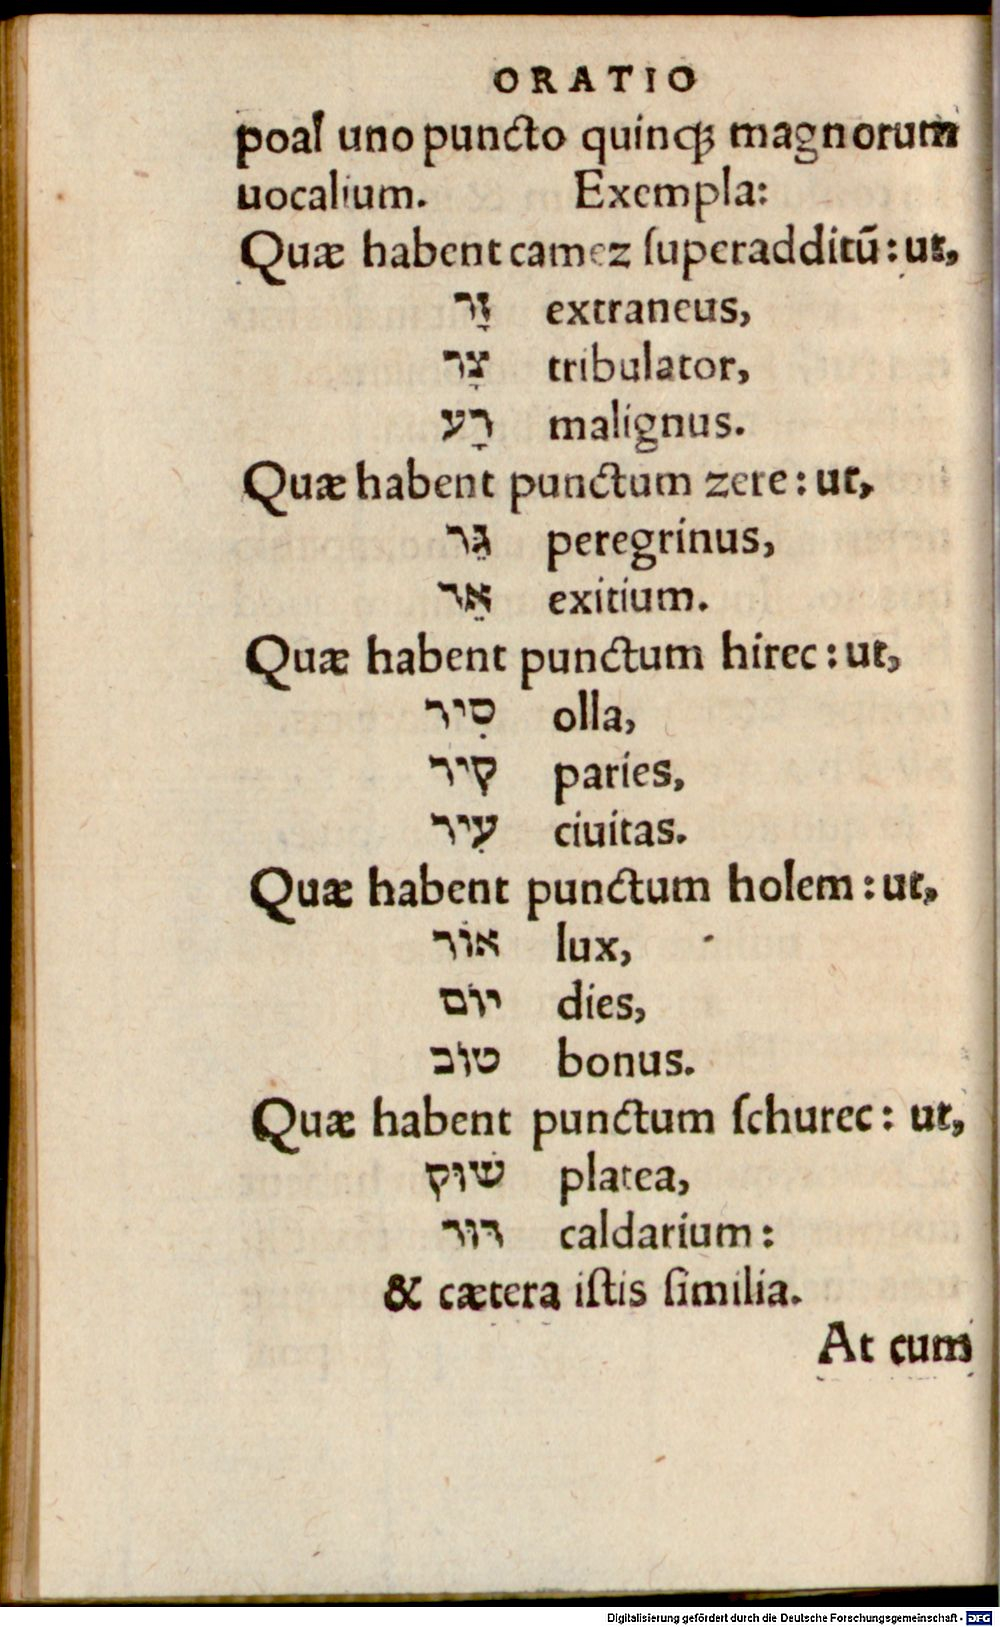 ORATIO
poal uno puncto quinq; magnorum
uocalium. Exempla:
Quæ habent camez ſuperadditū: ut,
זָר extraneus,
צָר tribulator,
רָע malignus.
Quæ habent punctum zere: ut,
גֵּר peregrinus,
אֵר exitium.
Quæ habent punctum hirec: ut,
סִיר olla,
קִיר paries,
עִיר ciuitas.
Quæ habent punctum holem: ut,
אוֹר lux,
יוֹם dies,
טוֹב bonus.
Quæ habent punctum ſchurec: ut,
שׁוּק platea,
דּוּר caldarium:
& cætera iſtis ſimilia.
At cum
Digitalisierung gefördert durch die Deutsche Forschungsgemeinschaft - DFG